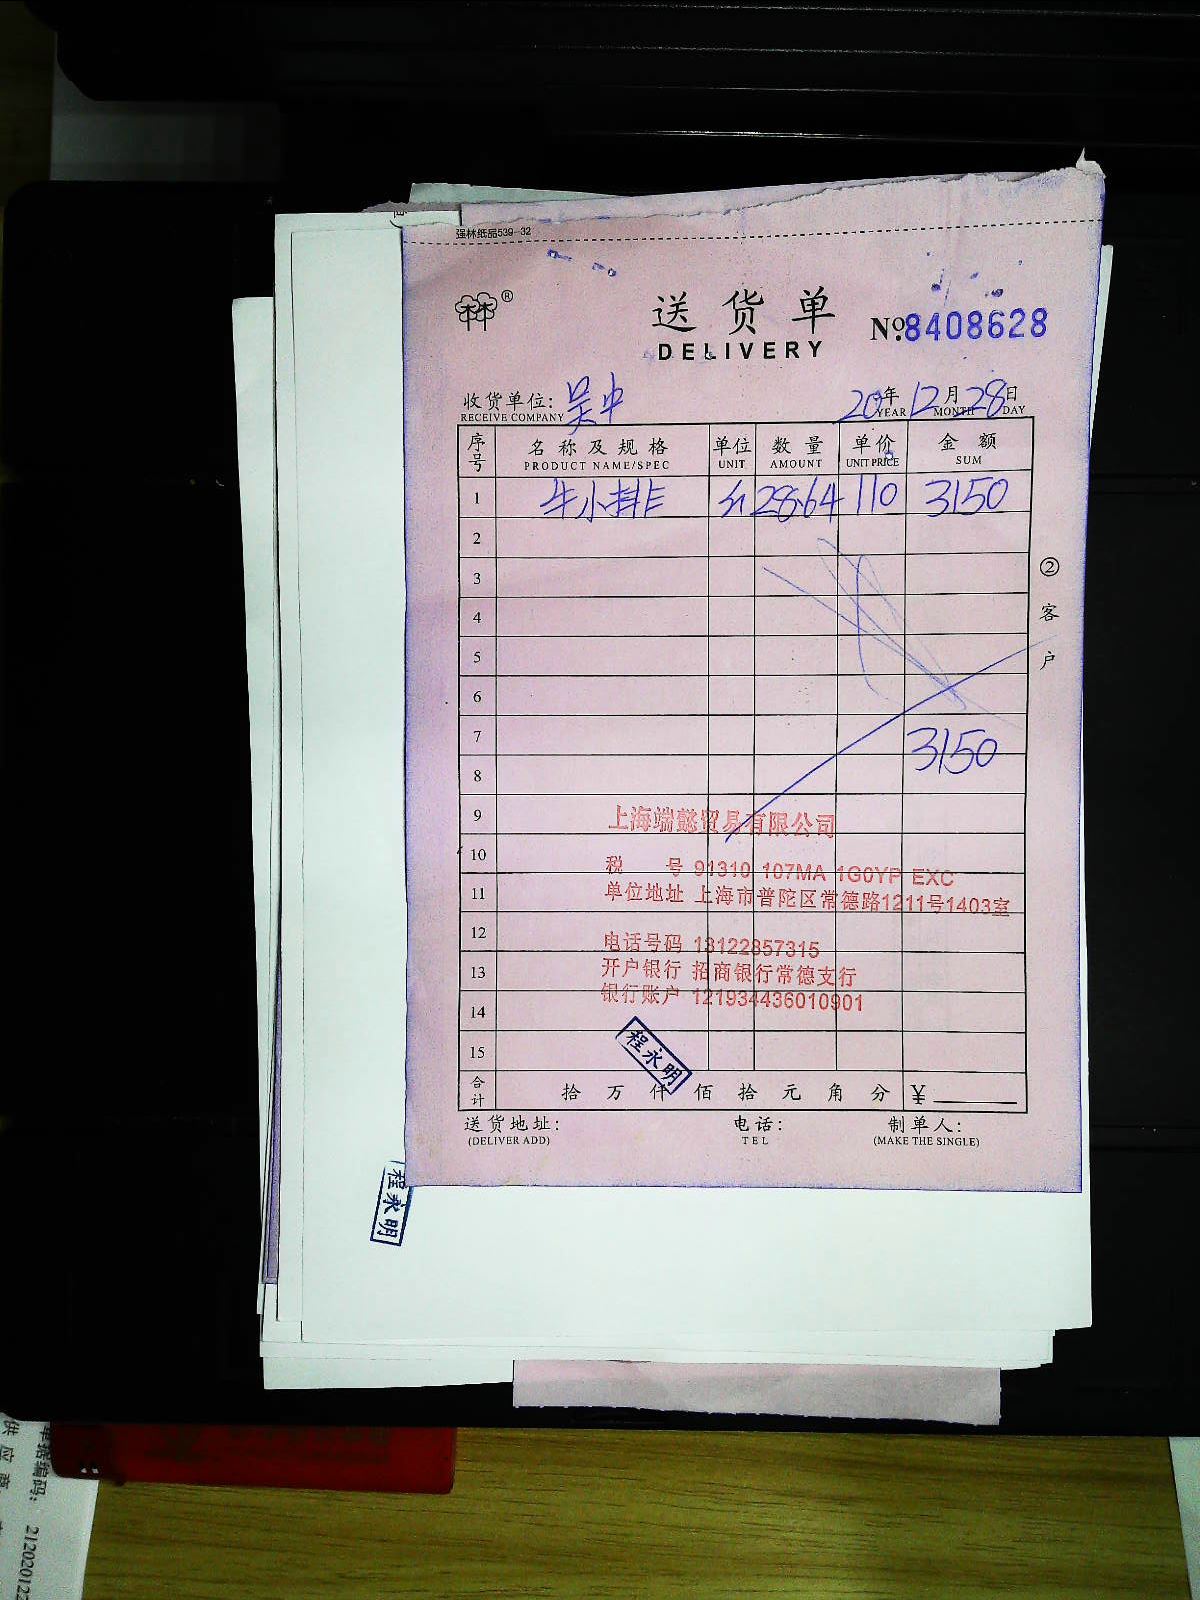 强林纸品539-32
林林®
送货单
DELIVERY
№.8408628
收货单位: 吴中 20年12月28日
RECEIVE COMPANY YEAR MONTH DAY
序号 名称及规格 单位 数量 单价 金额
PRODUCT NAME/SPEC UNIT AMOUNT UNIT PRICE SUM
1 牛小排 28.64 110 3150
2
3
4
5
6
7 3150
8
9
10
11
12
13
14
15
②客户
上海端懿贸易有限公司
税 号 91310 107MA 1G0YP EXC
单位地址 上海市普陀区常德路1211号1403室
电话号码 13122857315
开户银行 招商银行常德支行
银行账户 121934436010901
程永明
合计 拾 万 仟 佰 拾 元 角 分 ¥
送货地址: 电话: 制单人:
(DELIVER ADD) TEL (MAKE THE SINGLE)
程永明
单据编码:
供应商